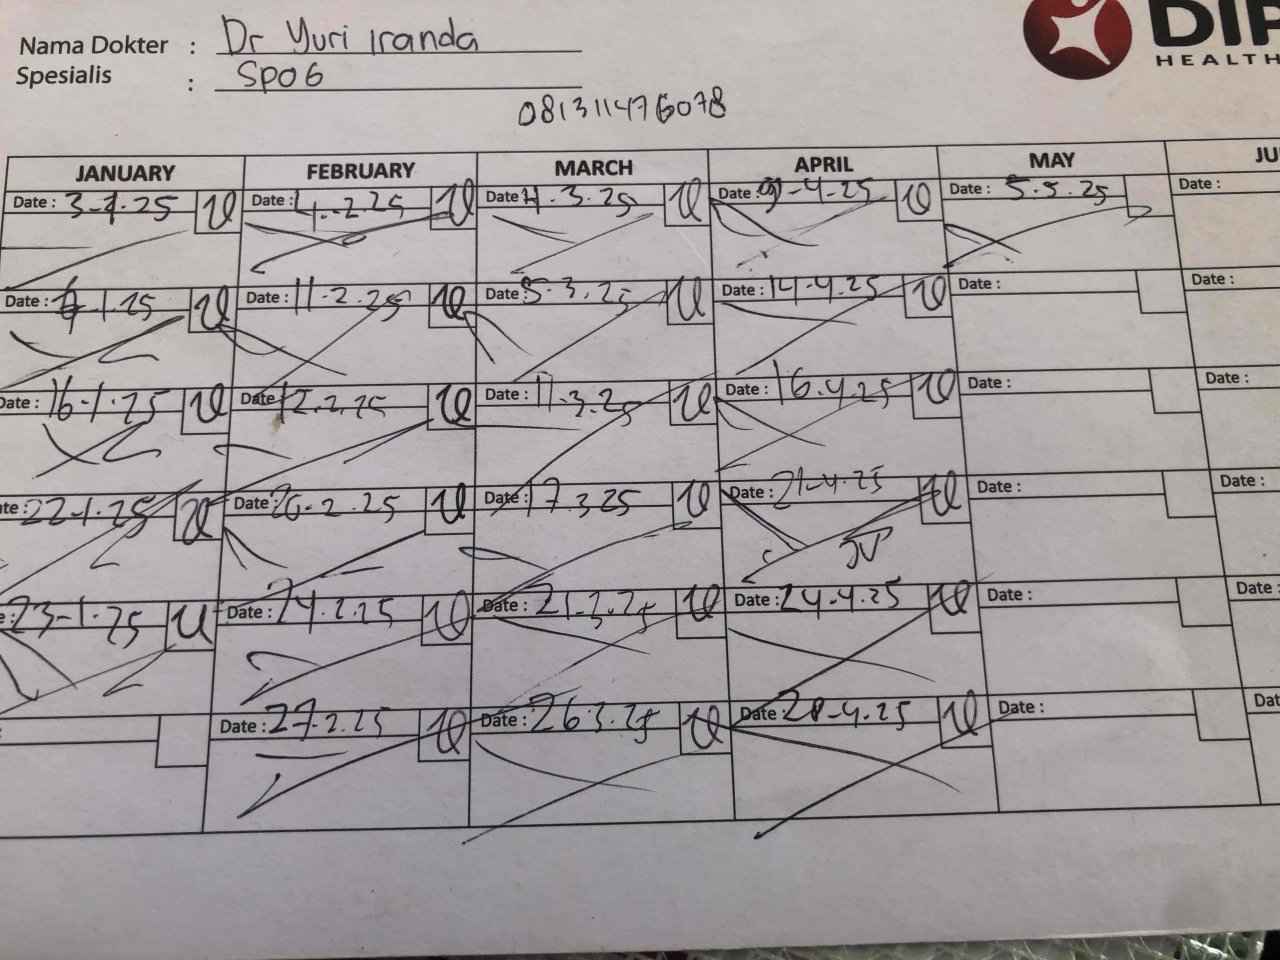 Nama Dokter : Dr Yuri Iranda
Spesialis : SpOG
DIP
HEALTH
081311476078
JANUARY FEBRUARY MARCH APRIL MAY JU
Date : 3-1-25 Date : 4-2-25 Date 4.3.25 Date : 9-4-25 Date : 5.5.25 Date :
Date : 1.25 Date : 11-2.25 Date : 5.3.25 Date : 14-4.25 Date : Date :
Date : 16-1.25 Date 12.2.25 Date : 11.3.25 Date : 16.4.25 Date : Date :
te : 22-1.25 Date 20-2.25 Date : 17.3.25 Date : 21-4-25 Date : Date :
e : 23-1.25 Date : 24.2.25 Date : 21.3.25 Date : 24-4.25 Date : Date :
: Date : 27-2.25 Date : 26.3.25 Date 28-4.25 Date : Dat